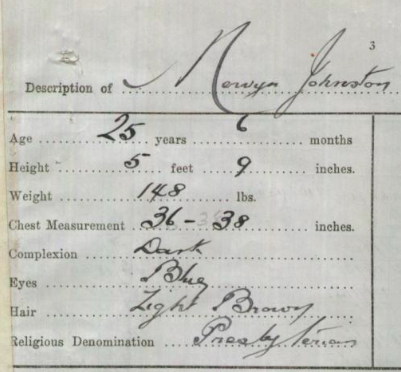 3
Description of Mervyn Johnston
Age 25 years 6 months
Height 5 feet 9 inches.
Weight 148 lbs.
Chest Measurement 36 - 38 inches.
Complexion Dark
Eyes Blue
Hair Light Brown
Religious Denomination Presbyterian